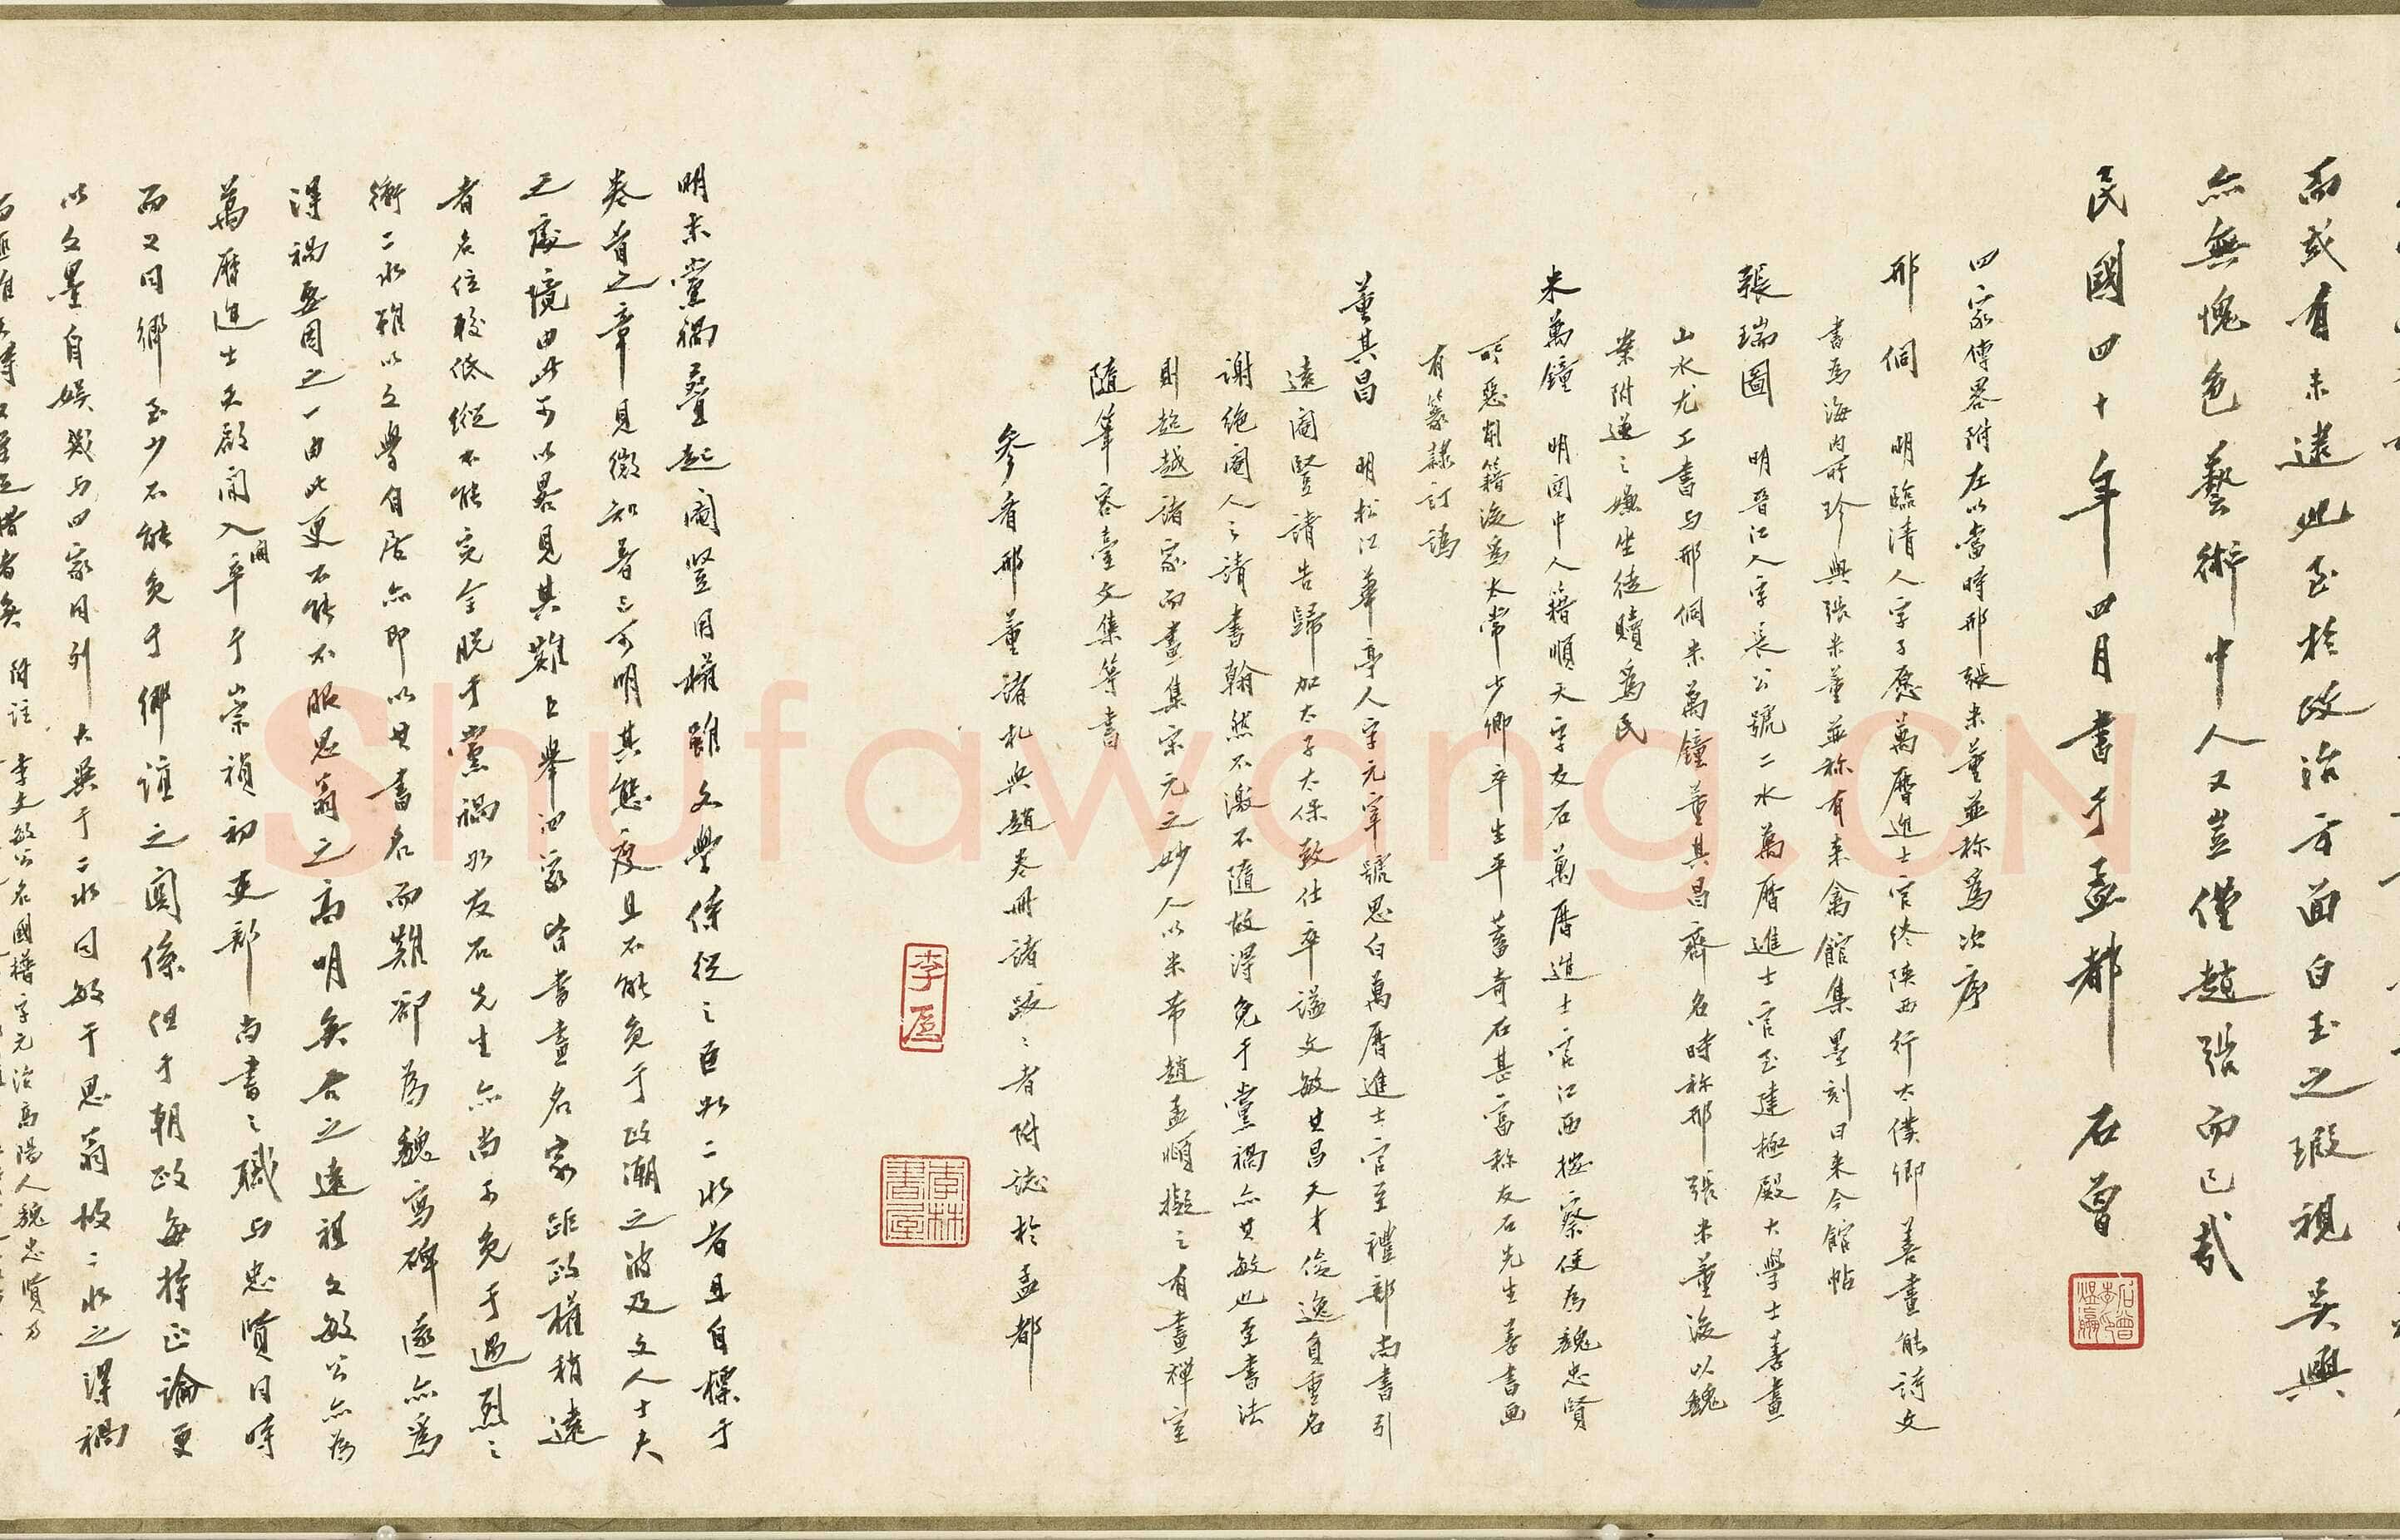 而或有未逮此至於政治方面白玉之瑕視吳興
亦無愧色藝術中人又豈僅趙張而已哉
民國四十年四月書于孟都 石曾
四家傳畧附左以當時邢張米董並称為次序
邢侗 明臨清人字子愿萬曆進士官終陝西行太僕卿 善畫能詩文
書為海内所珍與張米董並称有来禽館集墨刻曰来今館帖
張瑞圖 明晉江人字長公號二水萬曆進士官至建極殿大學士善畫
山水尤工書与邢侗米萬鐘董其昌齊名時称邢張米董後以魏
案附逆之嫌坐徒贖為民
米萬鐘 明関中人籍順天字友石萬曆進士官江西按察使為魏忠賢
所惡削籍後為太常少卿卒生平蓄奇石甚富称友石先生善書画
有篆隸訂譌
董其昌 明松江華亭人字元宰號思白萬曆進士官至禮部尚書引
遠閹豎請告歸加太子太保致仕卒謚文敏其昌天才俊逸負重名
謝絶閹人之請書翰然不激不隨故得免于黨禍亦其敏也至書法
則超越諸家而畫集宋元之妙人以米芾趙孟頫擬之有畫禅室
隨筆容臺文集等書
參看邢董諸札與趙卷冊諸跋之者附誌於孟都
李
李林書屋
明末黨禍疊起閹豎用權雖文學侍從之臣如二水者且自標于
卷首之章見微知著已可明其態度且不能免于政潮之波及文人士大
夫處境由此可以畧見其難上舉四家皆書畫名家距政權稍遠
者名位較低縱不能完全脱于黨禍如友石先生亦尚可免于過烈之
衝二水雖以文學自居亦即以其書名而難卻為魏寫碑遂亦為
得禍要因之一由此更不能不服思翁之高明矣右之遠祖文敏公亦為
萬曆進士天啟間入閣卒于崇禎初吏部尚書之職与忠賢同時
而又同鄉至少不能免于鄉誼之關係但于朝政每持正論更
以文墨自娱雖与四家同列大異于二水同敏于思翁故二水之得禍
附註 李文敏公名國𣚴字元治高陽人魏忠賢乃
Shufawang.CN